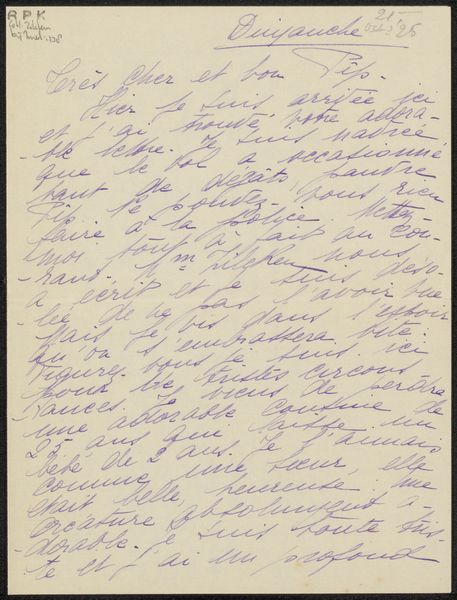 R P K
21
Oct. '25
Dimanche
Très cher et bon Pip.
Hier je suis arrivée ici
et j'ai trouvé votre adora-
-ble lettre. Je suis navrée
que le vol a occasionné
tant de dégâts, pauvre
Pip. Ne pouvez-vous rien
faire à la police. Mettez-
moi tout à fait au cou-
-rant. Mme Zilcken nous
a écrit et je suis déso-
lée de ne pas l'avoir vue
Mais je vis dans l'espoir
qu'on s'embrassera vite.
Figurez vous je suis ici
pour de tristes circons-
-tances. Je viens de perdre
une adorable cousine de
25 ans qui laisse un
bébé de 2 ans. Je l'aimais
comme une sœur, elle
était belle, heureuse, une
créature absolument a-
-dorable. Je suis toute tris-
te et j'ai un profond